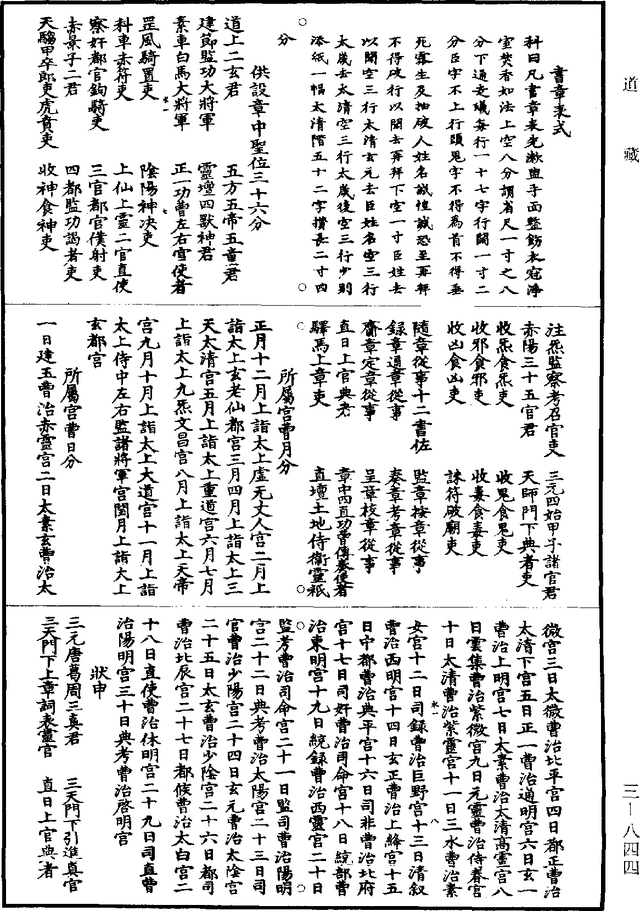 道藏
書章表式
科曰凡書章表先漱盥手面整飭衣冠淨
室焚香如法上空八分謂省尺一寸之八
分下通走蟻每行一十七字行闊一寸二
分臣字不上行頭鬼字不得為首不得垂
死露生及抽破人姓名誠惶誠恐至再拜
不得破行以聞去再拜下空一寸臣姓去
以聞空三行太清玄元去臣姓名空三行
太歲去太清空三行太歲後空三行少則
添紙一幅太清階五十二字攢長二寸四
分
供設章中聖位三十六分
道上二玄君 五方五帝五童君
建節監功大將軍 靈壇四獸神君
素車白馬大將軍 正一功曹左右官使者
罡風騎置吏 陰陽神决吏
科車赤符吏 上仙上靈二官直使
察奸都官鉤騎吏 三官都官僕射吏
赤景子二君 四都監功謁者吏
天騶甲卒郎吏虎賁吏 收神食神吏
注炁監察考召官吏 三元四始甲子諸官君
赤陽三十五官君 天師門下典者吏
收炁食炁吏 收鬼食鬼吏
收邪食邪吏 收毒食毒吏
收凶食凶吏 誅符破廟吏
隨章從事十二書佐 監章按章從事
錄章通章從事 奏章考章從事
齎章定章從事 呈章校章從事
直日上官典者 章中四直功曹傳奏使者
驛馬上章吏 直壇土地侍衛靈祇
所屬宮曹月分
正月十二月上詣太上虛无丈人宮二月上
詣太上玄老仙都宮三月四月上詣太上三
天太清宮五月上詣太上重道宮六月七月
上詣太上九炁文昌宮八月上詣太上天帝
宮九月十月上詣太上大道宮十一月上詣
太上侍中左右監諸將軍宮閏月上詣太上
玄都宮
所屬宮曹日分
一日建玉曹治赤靈宮二日太素玄曹治太
微宮三日太微曹治北平宮四日都正曹治
太清下宮五日正一曹治通明宮六日玄一
曹治上明宮七日太素曹治太清高靈宮八
日雲集曹治紫微宮九日元靈曹治侍眷宮
十日太清曹治紫靈宮十一日三水曹治素
女宮十二日司錄曹治巨野宮十三日清叙
曹治西明宮十四日玄正曹治上絳宮十五
日中都曹治典平宮十六日司非曹治北府
宮十七日司奸曹治司命宮十八日統部曹
治東明宮十九日統錄曹治西靈宮二十日
監考曹治司命宮二十一日監司曹治陽明
宮二十二日典考曹治太陽宮二十三日司
官曹治少陽宮二十四日玄元曹治太陰宮
二十五日太玄曹治少陰宮二十六日都司
曹治北辰宮二十七日都候曹治太白宮二
十八日直使曹治休明宮二十九日司直曹
治陽明宮三十日典考曹治啓明宮
狀申
三元唐葛周三真君 三天門下引進真官
三天門下上章詞表靈官 直日上官典者
三一八四四